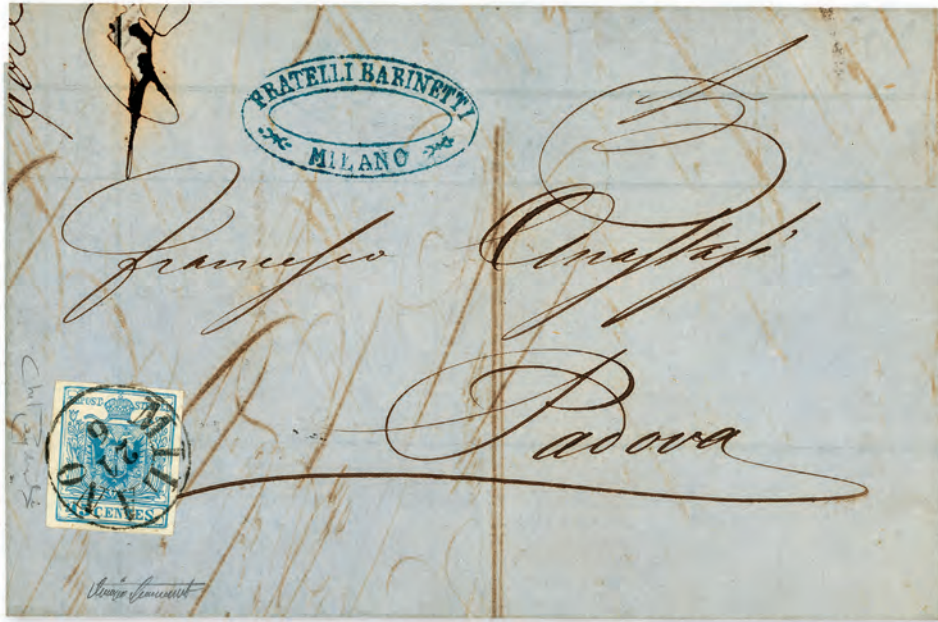 FRATELLI BARINETTI
MILANO
Francesco Anastasi
Padova
KKPOST-STEMPEL
MILANO
26
45 CENTES